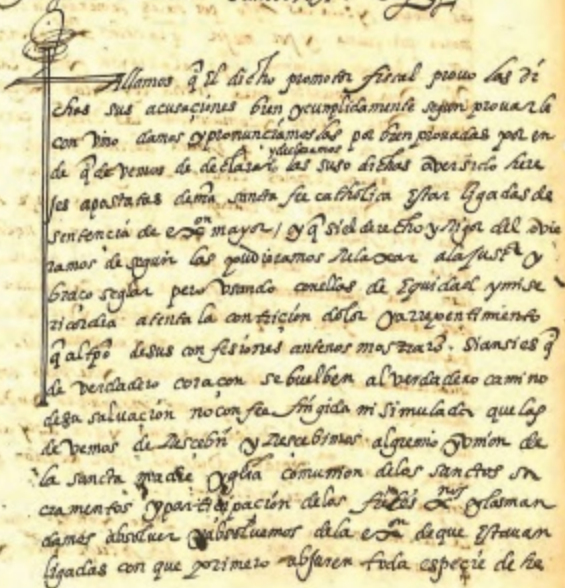 Fallamos q̃ El dicho promotor fiscal provo las di
chas sus acusaciones bien y cumplidamente segun provar le
con vino damos y pronunciamoslas por bien provadas por en
y declaramos
de q̃ devemos de declarar las suso dichas aver sido here
jes apostatas de nr̃a sancta fee catholica Estar ligadas de
sentencia de exon mayor / y q̃ si el derecho y Rigor del ovie
ramos de seguir las pudieramos Relaxar a la justa y
braço seglar pero usando con ellas de Equidad y mise
ricordia atenta la contricion dolor y arrepentimiento
q̃ al tp̃o de sus confesiones ante nos mostrarõ. si ansi es q̃
de verdadero coraçon se buelben al verdadero camino
de sa salvacion no con fea fingida ni simulada que las
devemos de Rescebir y Rescebimos al gremio y union de
la sancta madre yglia comunion de los sanctos sa
cramentos y participacion de los fieles xnos y las man
damos absolver y absolvemos de la exon de que Estavan
ligadas con que primero abjuren toda especie de he